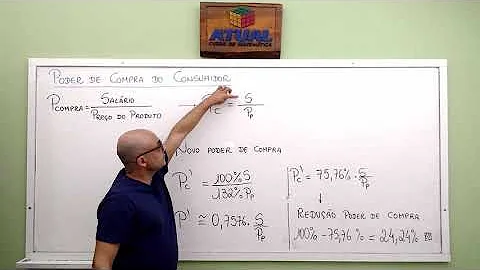 ATUAL
CURSO DE MATEMÁTICA
PODER DE COMPRA DO CONSUMIDOR
PCOMPRA = SALÁRIO / PREÇO DO PRODUTO
Pc = S / Pp
NOVO PODER DE COMPRA
Pc' = 100% S / 132% Pp
P' ≅ 0,7576 · S / Pp
Pc' = 75,76% · S / Pp
REDUÇÃO PODER DE COMPRA
100% - 75,76% = 24,24%